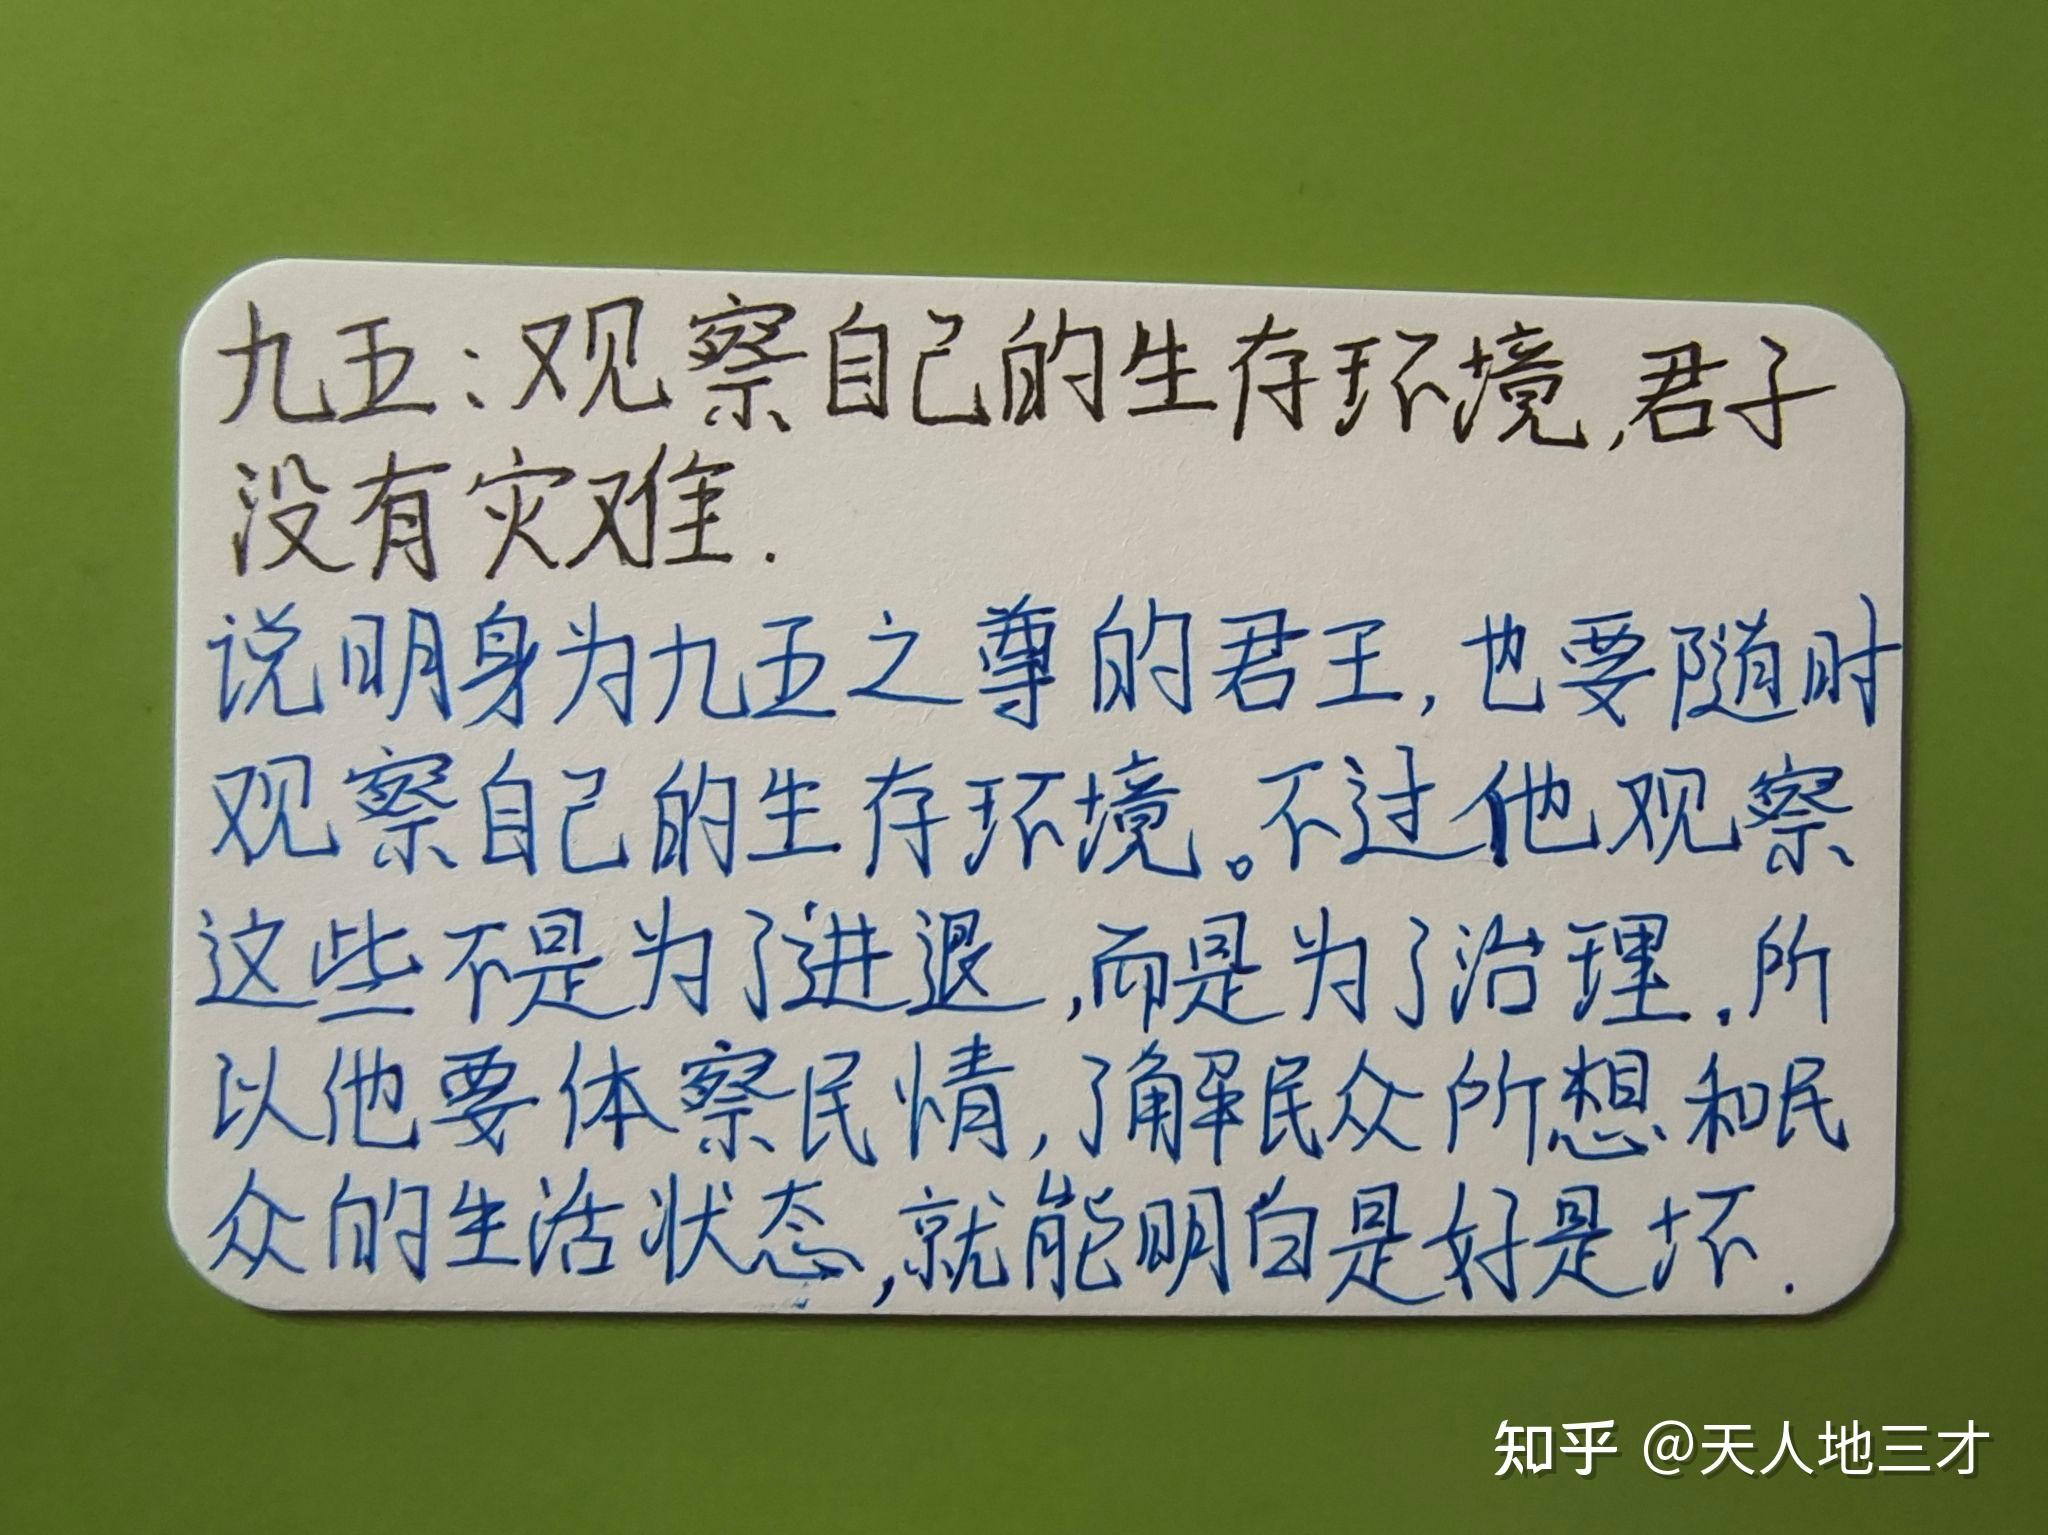 九五:观察自己的生存环境,君子
没有灾难.
说明身为九五之尊的君王,也要随时
观察自己的生存环境。不过他观察
这些不是为了进退,而是为了治理.所
以他要体察民情,了解民众所想和民
众的生活状态,就能明白是好是坏.
知乎 @天人地三才